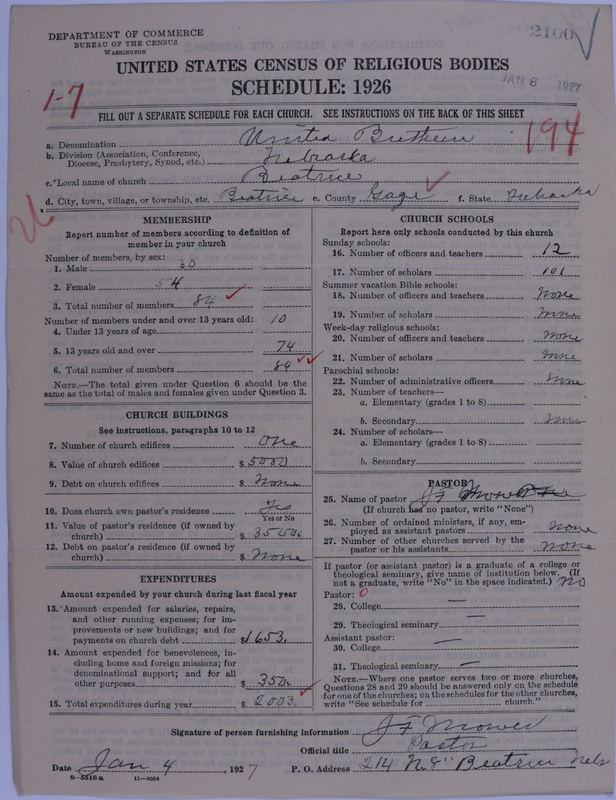 DEPARTMENT OF COMMERCE
BUREAU OF THE CENSUS
WASHINGTON
JAN 8 1927
UNITED STATES CENSUS OF RELIGIOUS BODIES
SCHEDULE: 1926
1-7
FILL OUT A SEPARATE SCHEDULE FOR EACH CHURCH. SEE INSTRUCTIONS ON THE BACK OF THIS SHEET
194
a. Denomination United Brethren
b. Division (Association, Conference, Diocese, Presbytery, Synod, etc.) Nebraska
c. Local name of church Beatrice
d. City, town, village, or township, etc. Beatrice e. County Gage f. State Nebraska
26
MEMBERSHIP
Report number of members according to definition of
member in your church
Number of members, by sex:
1. Male 30
2. Female 54
3. Total number of members 84
Number of members under and over 13 years old:
4. Under 13 years of age 10
5. 13 years old and over 74
6. Total number of members 84
NOTE.—The total given under Question 6 should be the
same as the total of males and females given under Question 3.
CHURCH BUILDINGS
See instructions, paragraphs 10 to 12
7. Number of church edifices One
8. Value of church edifices $ 5000
9. Debt on church edifices $ None
10. Does church own pastor's residence Yes
Yes or No
11. Value of pastor's residence (if owned by
church) $ 3500.
12. Debt on pastor's residence (if owned by
church) $ None
EXPENDITURES
Amount expended by your church during last fiscal year
13. Amount expended for salaries, repairs,
and other running expenses; for im-
provements or new buildings; and for
payments on church debt $1653.
14. Amount expended for benevolences, in-
cluding home and foreign missions; for
denominational support; and for all
other purposes $ 350.
15. Total expenditures during year $ 2003.
CHURCH SCHOOLS
Report here only schools conducted by this church
Sunday schools:
16. Number of officers and teachers 12
17. Number of scholars 101
Summer vacation Bible schools:
18. Number of officers and teachers None
19. Number of scholars None
Week-day religious schools:
20. Number of officers and teachers None
21. Number of scholars None
Parochial schools:
22. Number of administrative officers None
23. Number of teachers—
a. Elementary (grades 1 to 8)
b. Secondary None
24. Number of scholars—
a. Elementary (grades 1 to 8)
b. Secondary
PASTOR
25. Name of pastor J F Mower
(If church has no pastor, write "None")
26. Number of ordained ministers, if any, em-
ployed as assistant pastors None
27. Number of other churches served by the
pastor or his assistants None
If pastor (or assistant pastor) is a graduate of a college or
theological seminary, give name of institution below. (If
not a graduate, write "No" in the space indicated.) No
Pastor: 0
28. College —
29. Theological seminary —
Assistant pastor: —
30. College
31. Theological seminary —
NOTE.—Where one pastor serves two or more churches,
Questions 28 and 29 should be answered only on the schedule
for one of the churches; on the schedules for the other churches,
write "See schedule for church."
Signature of person furnishing information J F Mower
Official title Pastor
Date Jan 4, 1927 P. O. Address 214 N. 8" Beatrice Nebr
8-5516a 11-9054